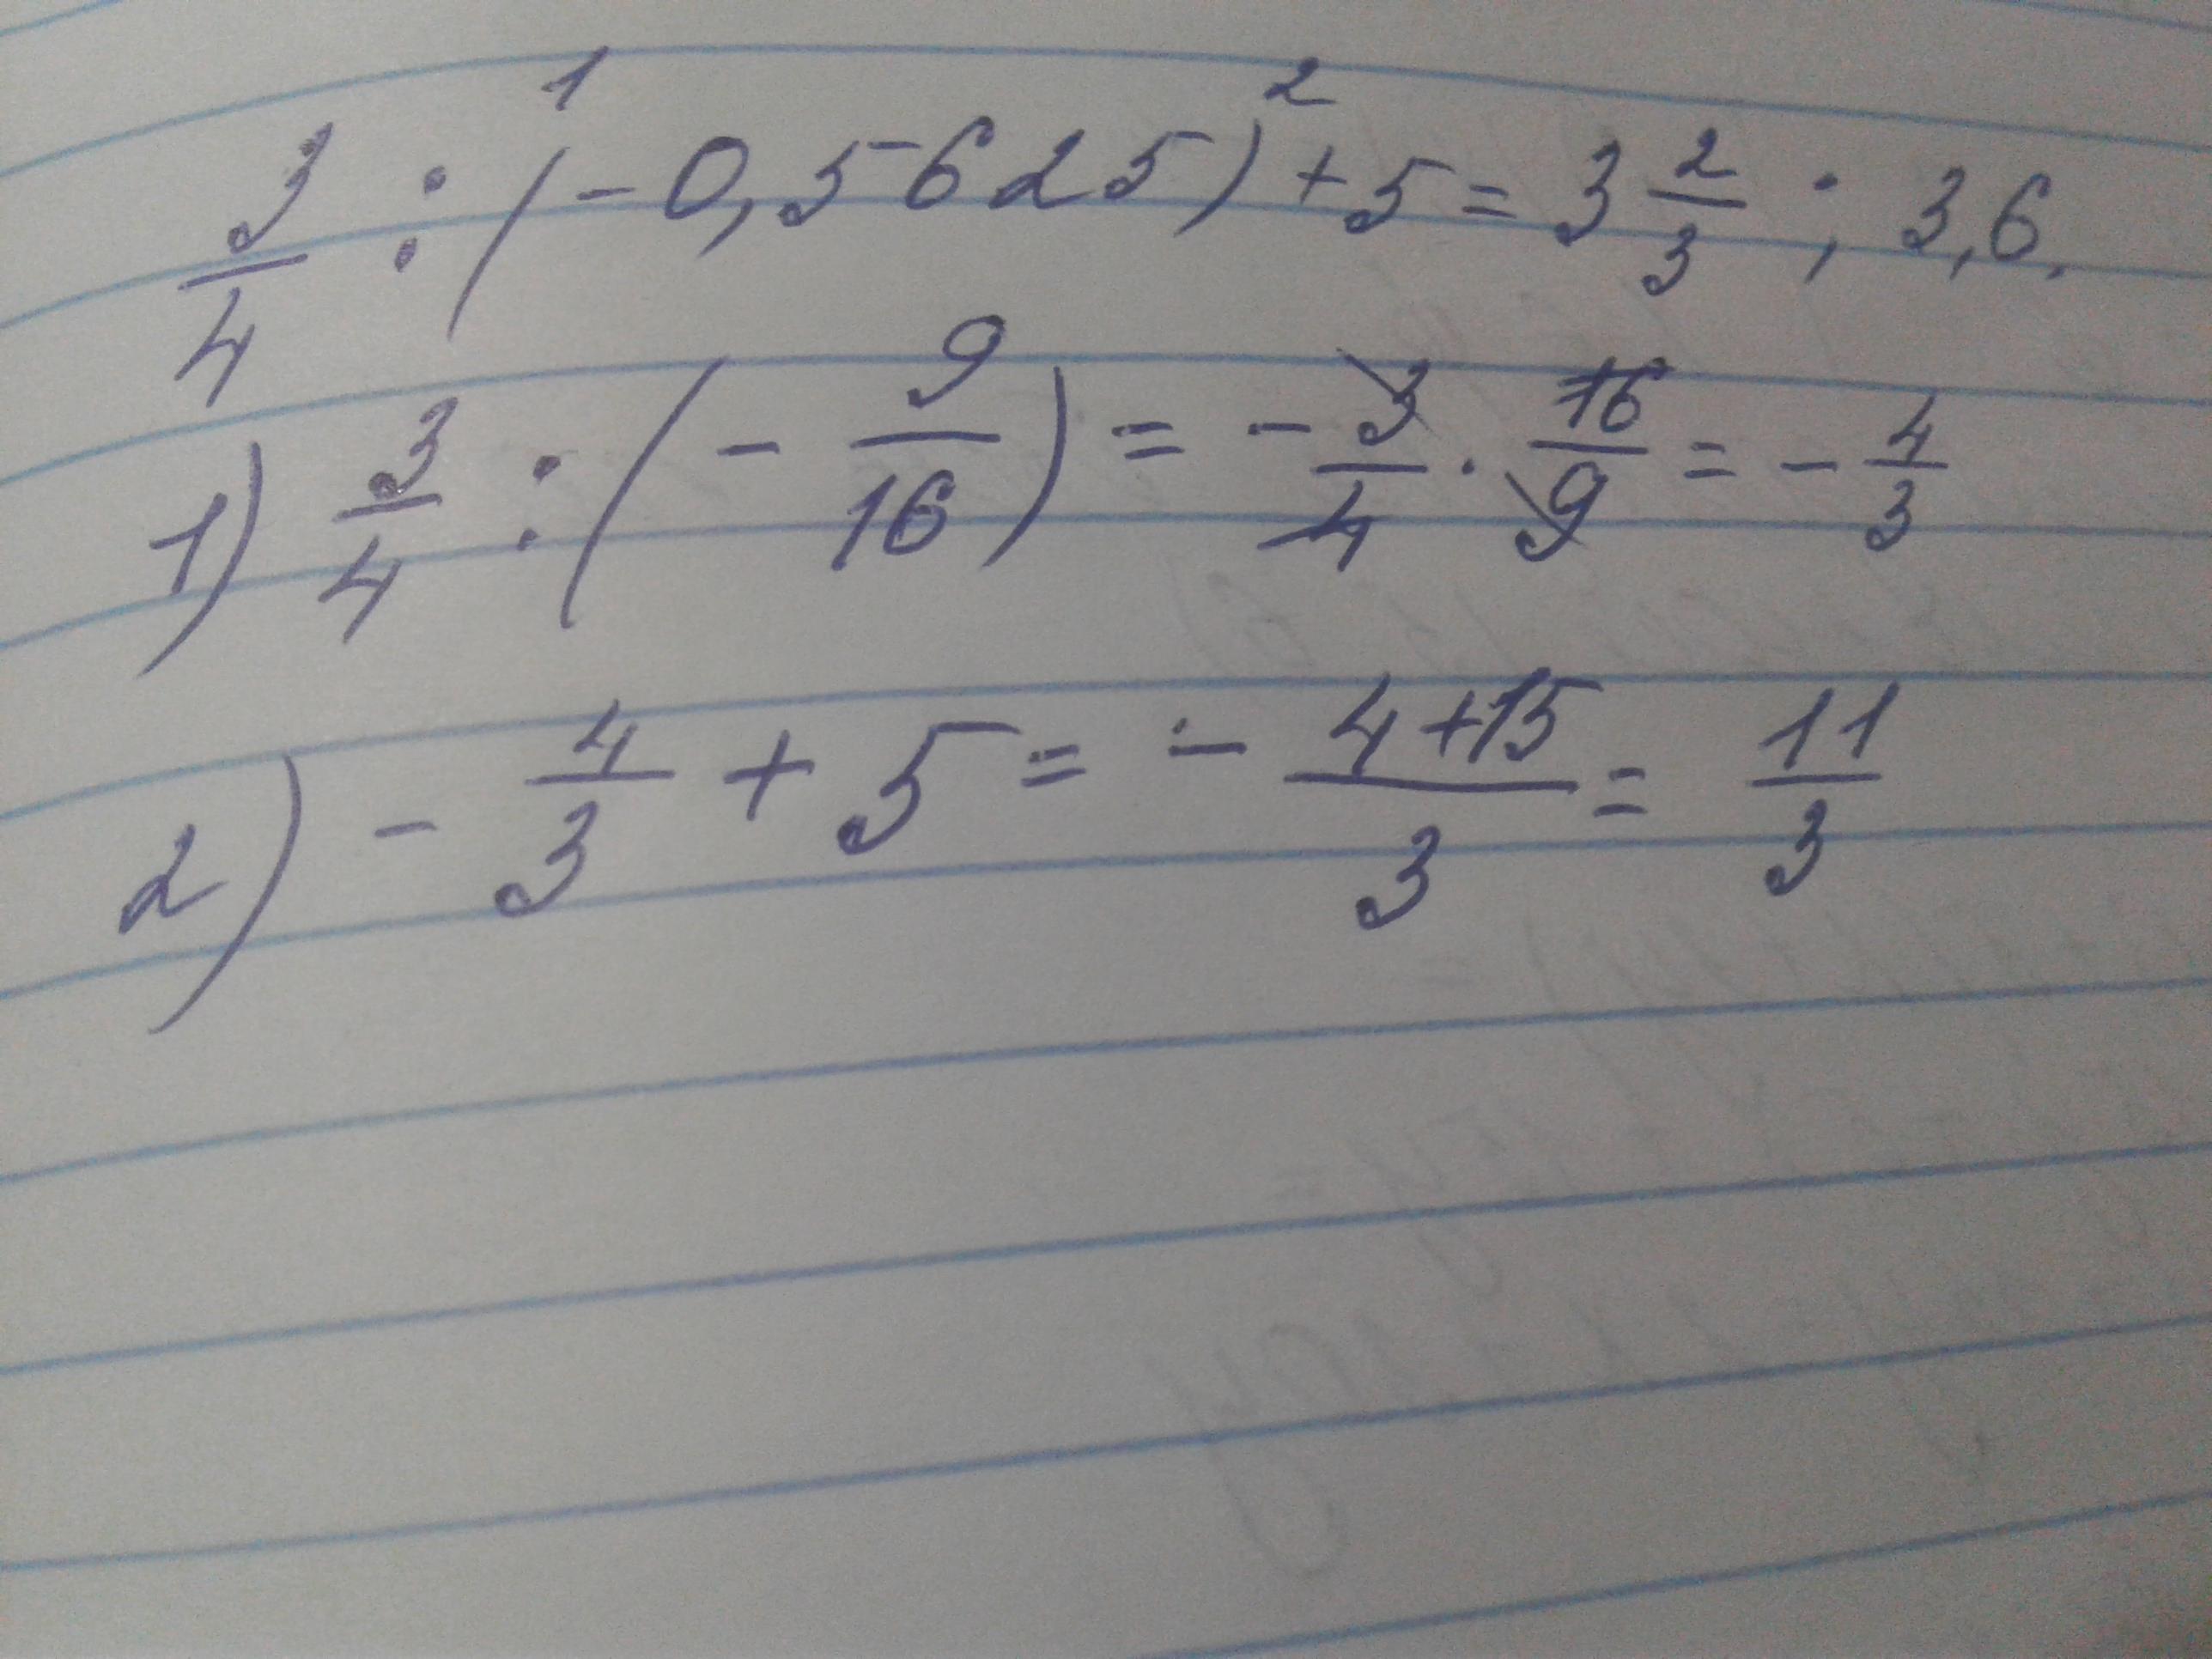 3/4 :¹ (-0,5625) +² 5 = 3 2/3 ; 3,6.
1) 3/4 : (- 9/16) = - 3/4 · 16/9 = - 4/3
2) - 4/3 + 5 = - 4+15/3 = 11/3